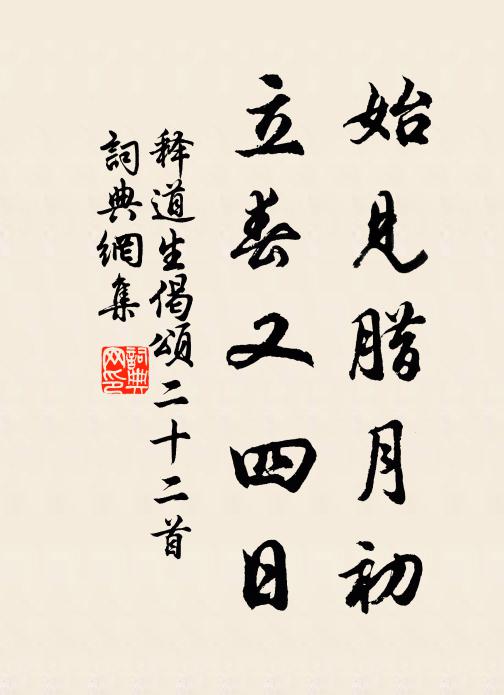 始見腊月初
立春又四日
释道生偈頌二十二首
詞典網集
詞典
网印